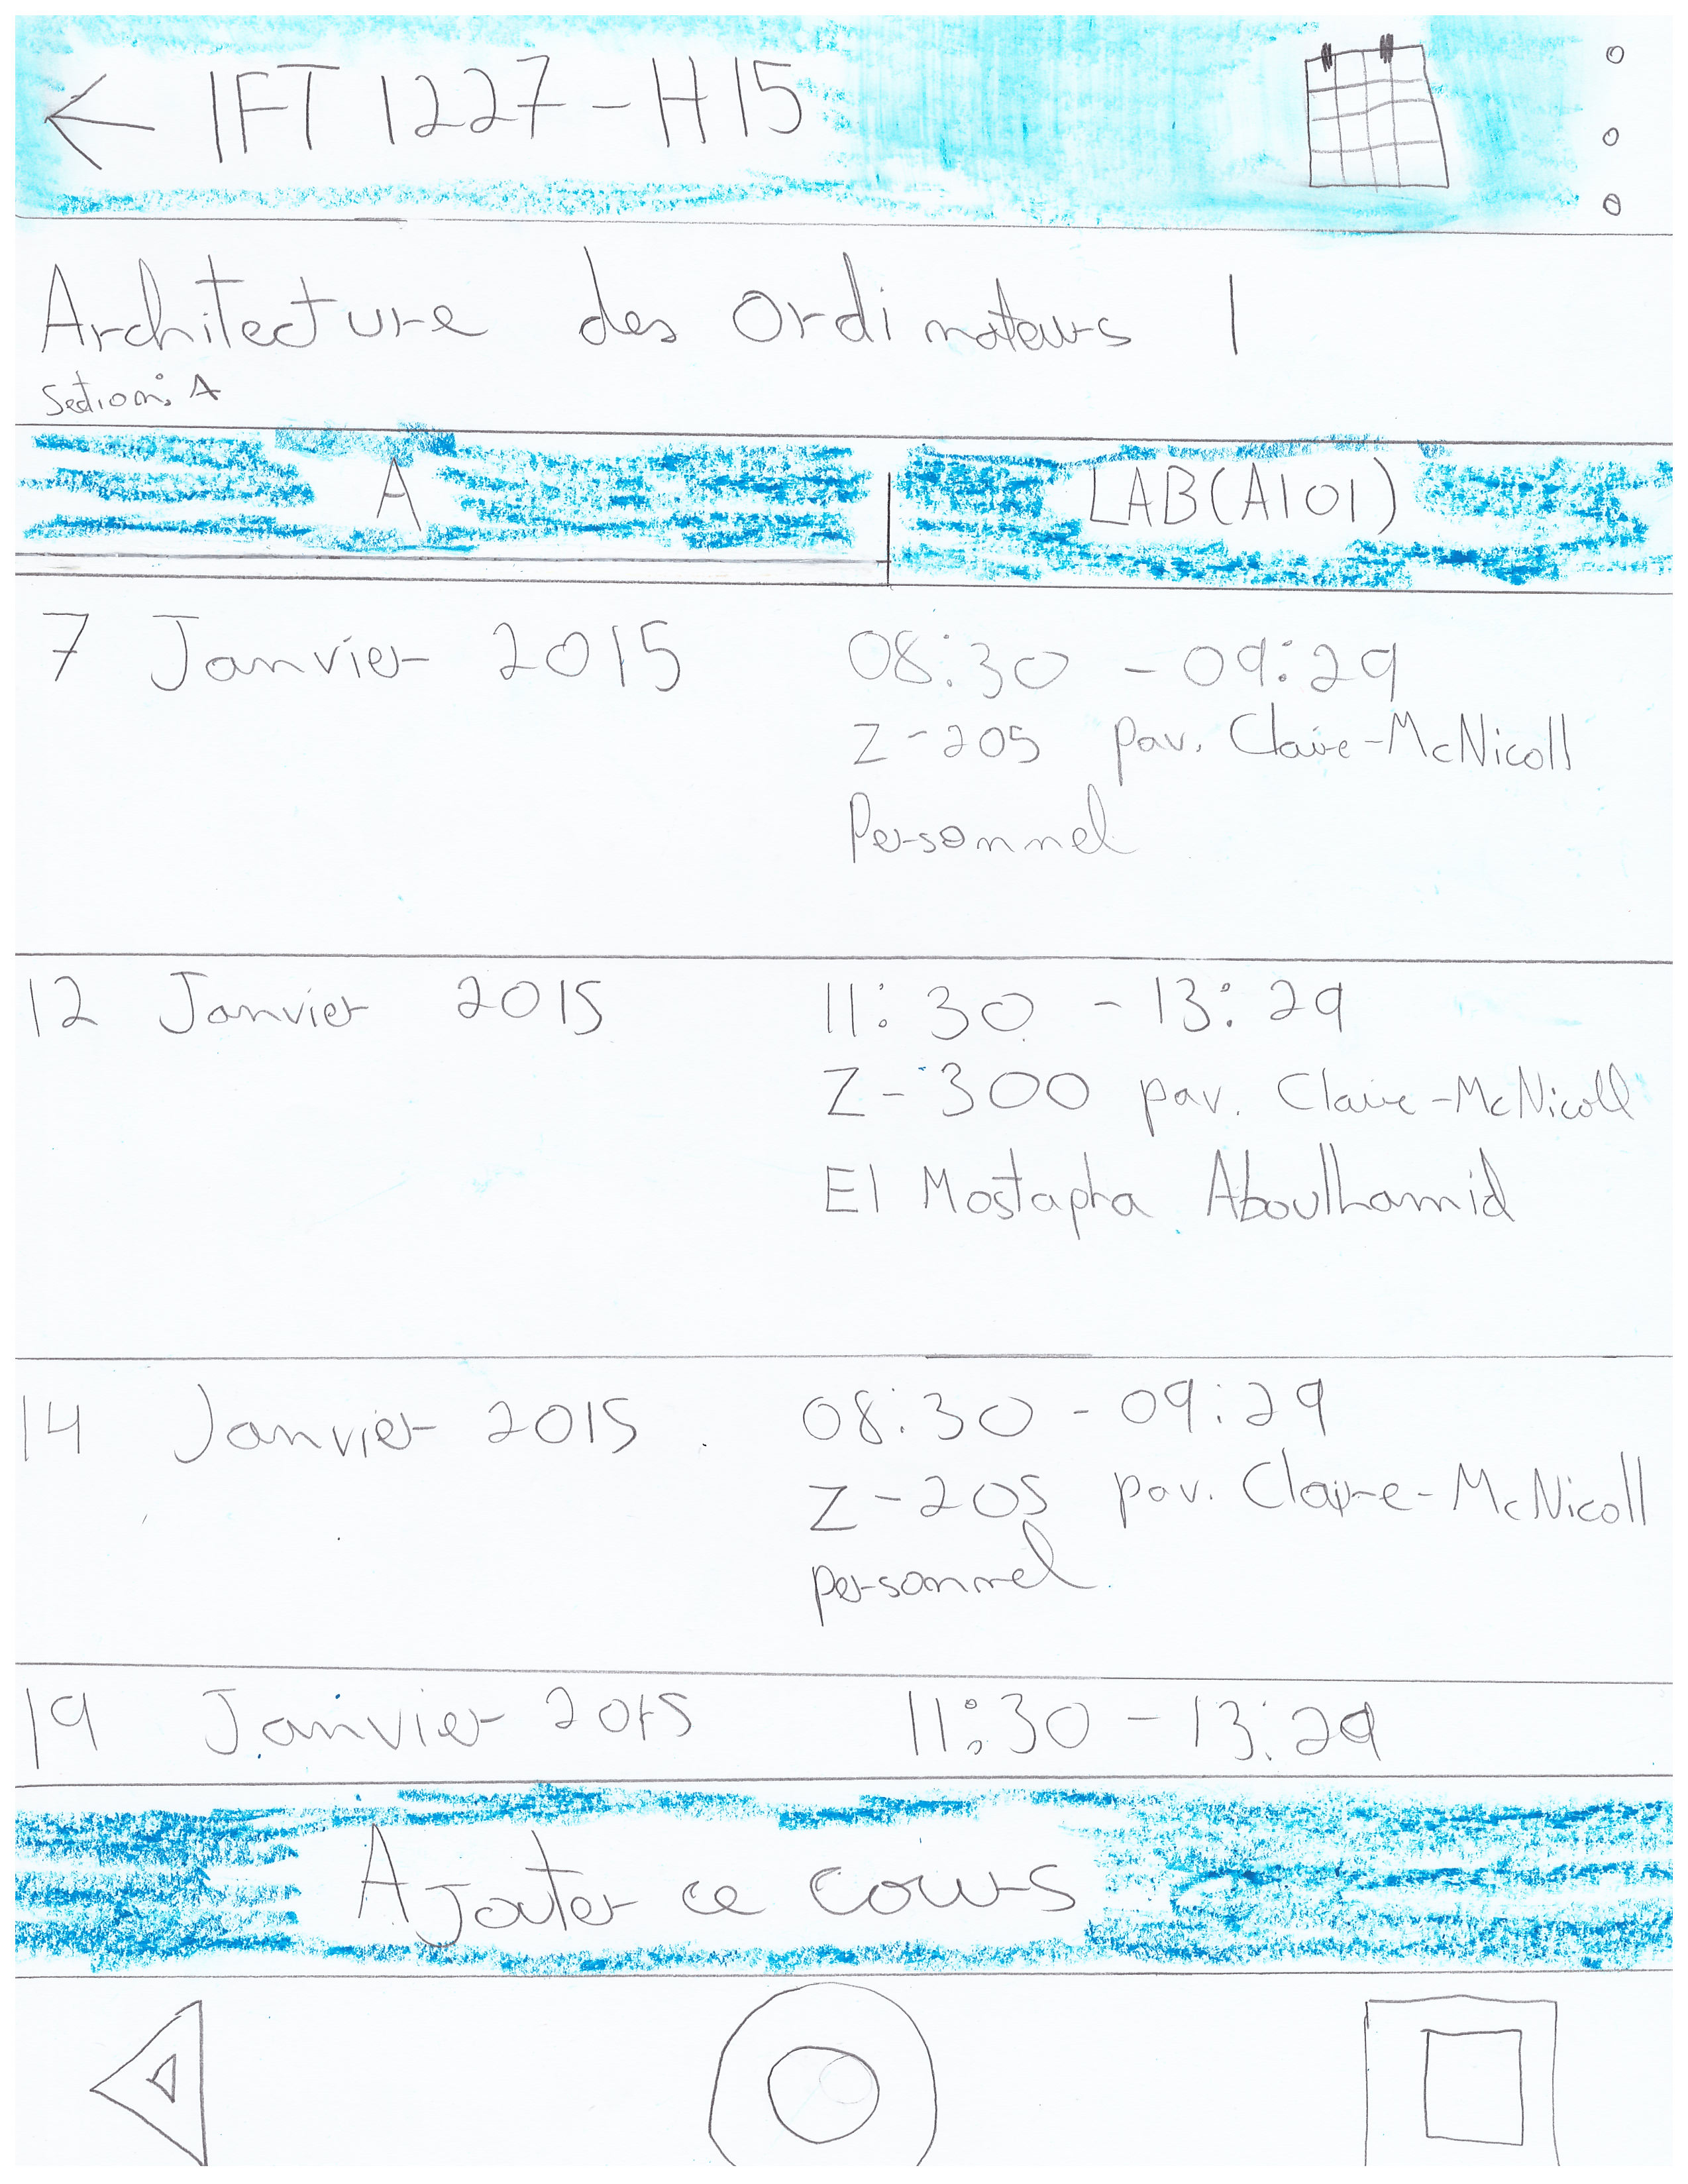 ← IFT 1227 - H15
Architecture des Ordinateurs 1
Section: A
A
LAB(A101)
7 Janvier 2015
08:30 - 09:29
Z-205 pav. Claire-McNicoll
Personnel
12 Janvier 2015
11:30 - 13:29
Z-300 pav. Claire-McNicoll
El Mostapha Aboulhamid
14 Janvier 2015
08:30 - 09:29
Z-205 pav. Claire-McNicoll
personnel
19 Janvier 2015
11:30 - 13:29
Ajouter ce cours